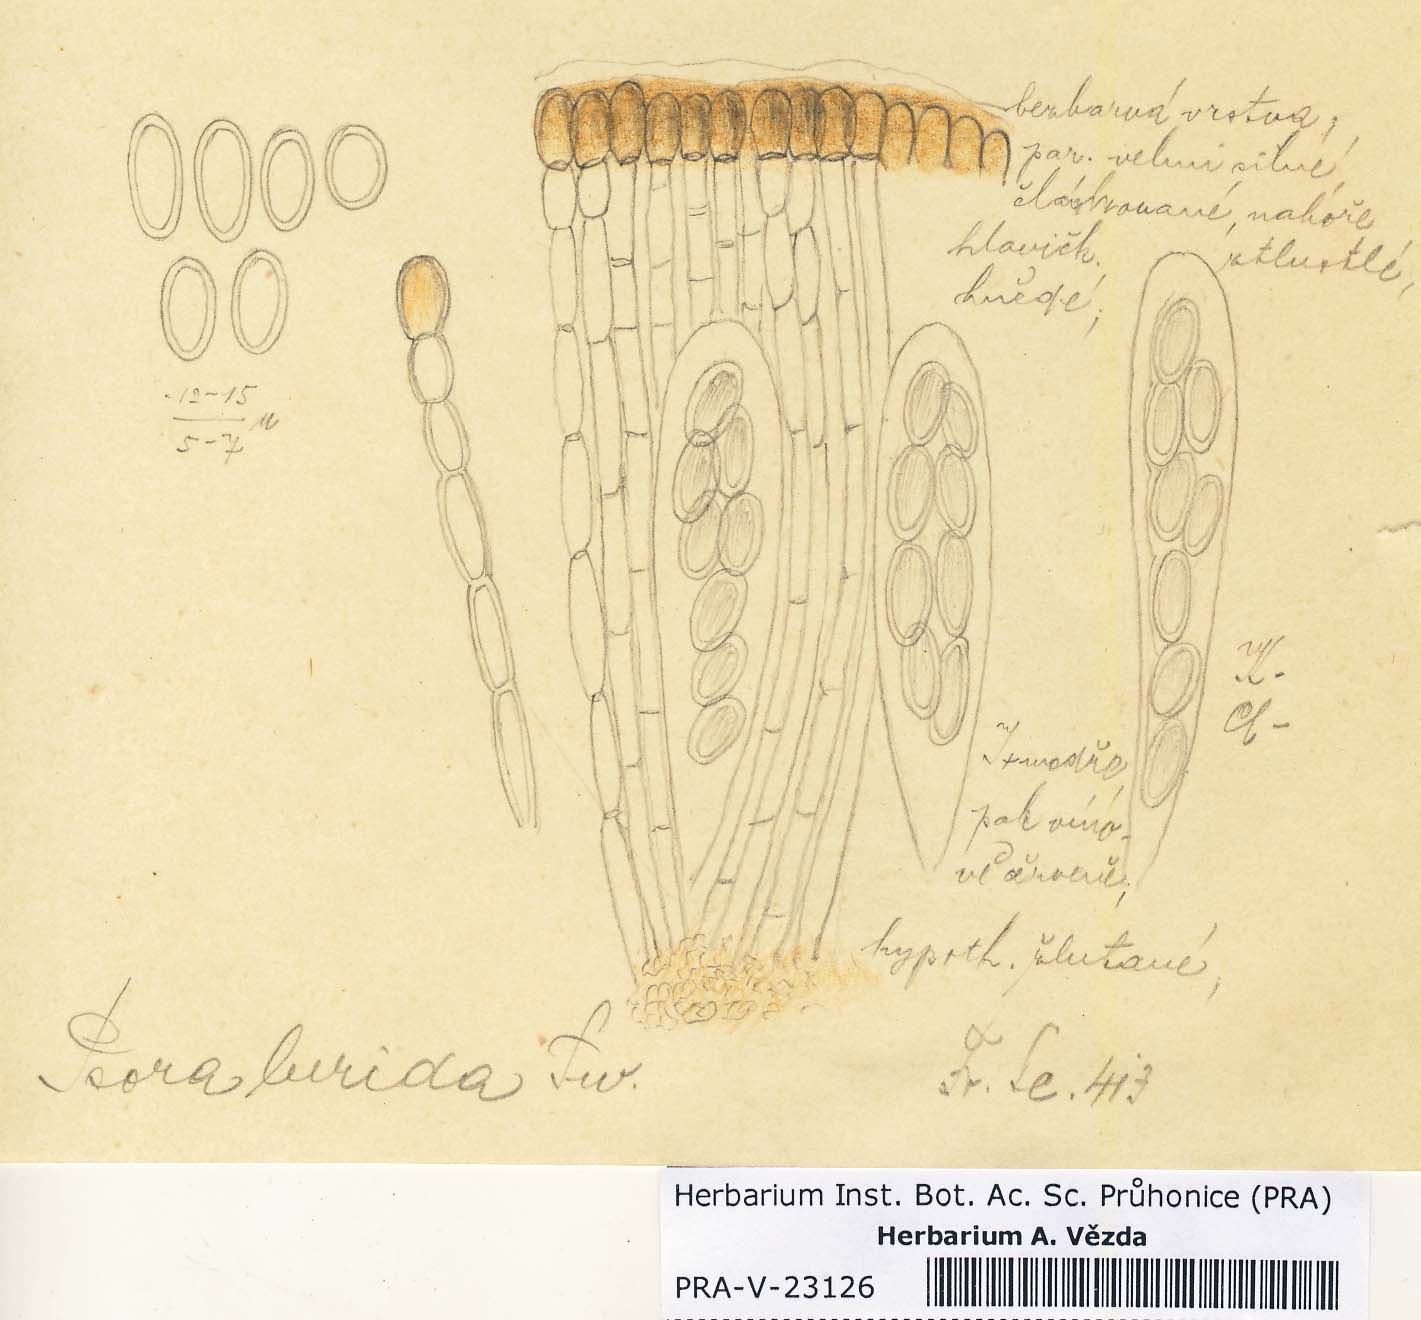 bezbarvá vrstva;
par. velmi silné
člákované, nahoře
hlavičk. ztlustlé,
hnědé;
12-15
5-7 µ
K-
Cl-
J+ modře
pak víno-
vě červeně;
hypoth. žlutavé,
Psora lurida Sw.
Fr. Le. 413
Herbarium Inst. Bot. Ac. Sc. Průhonice (PRA)
Herbarium A. Vězda
PRA-V-23126